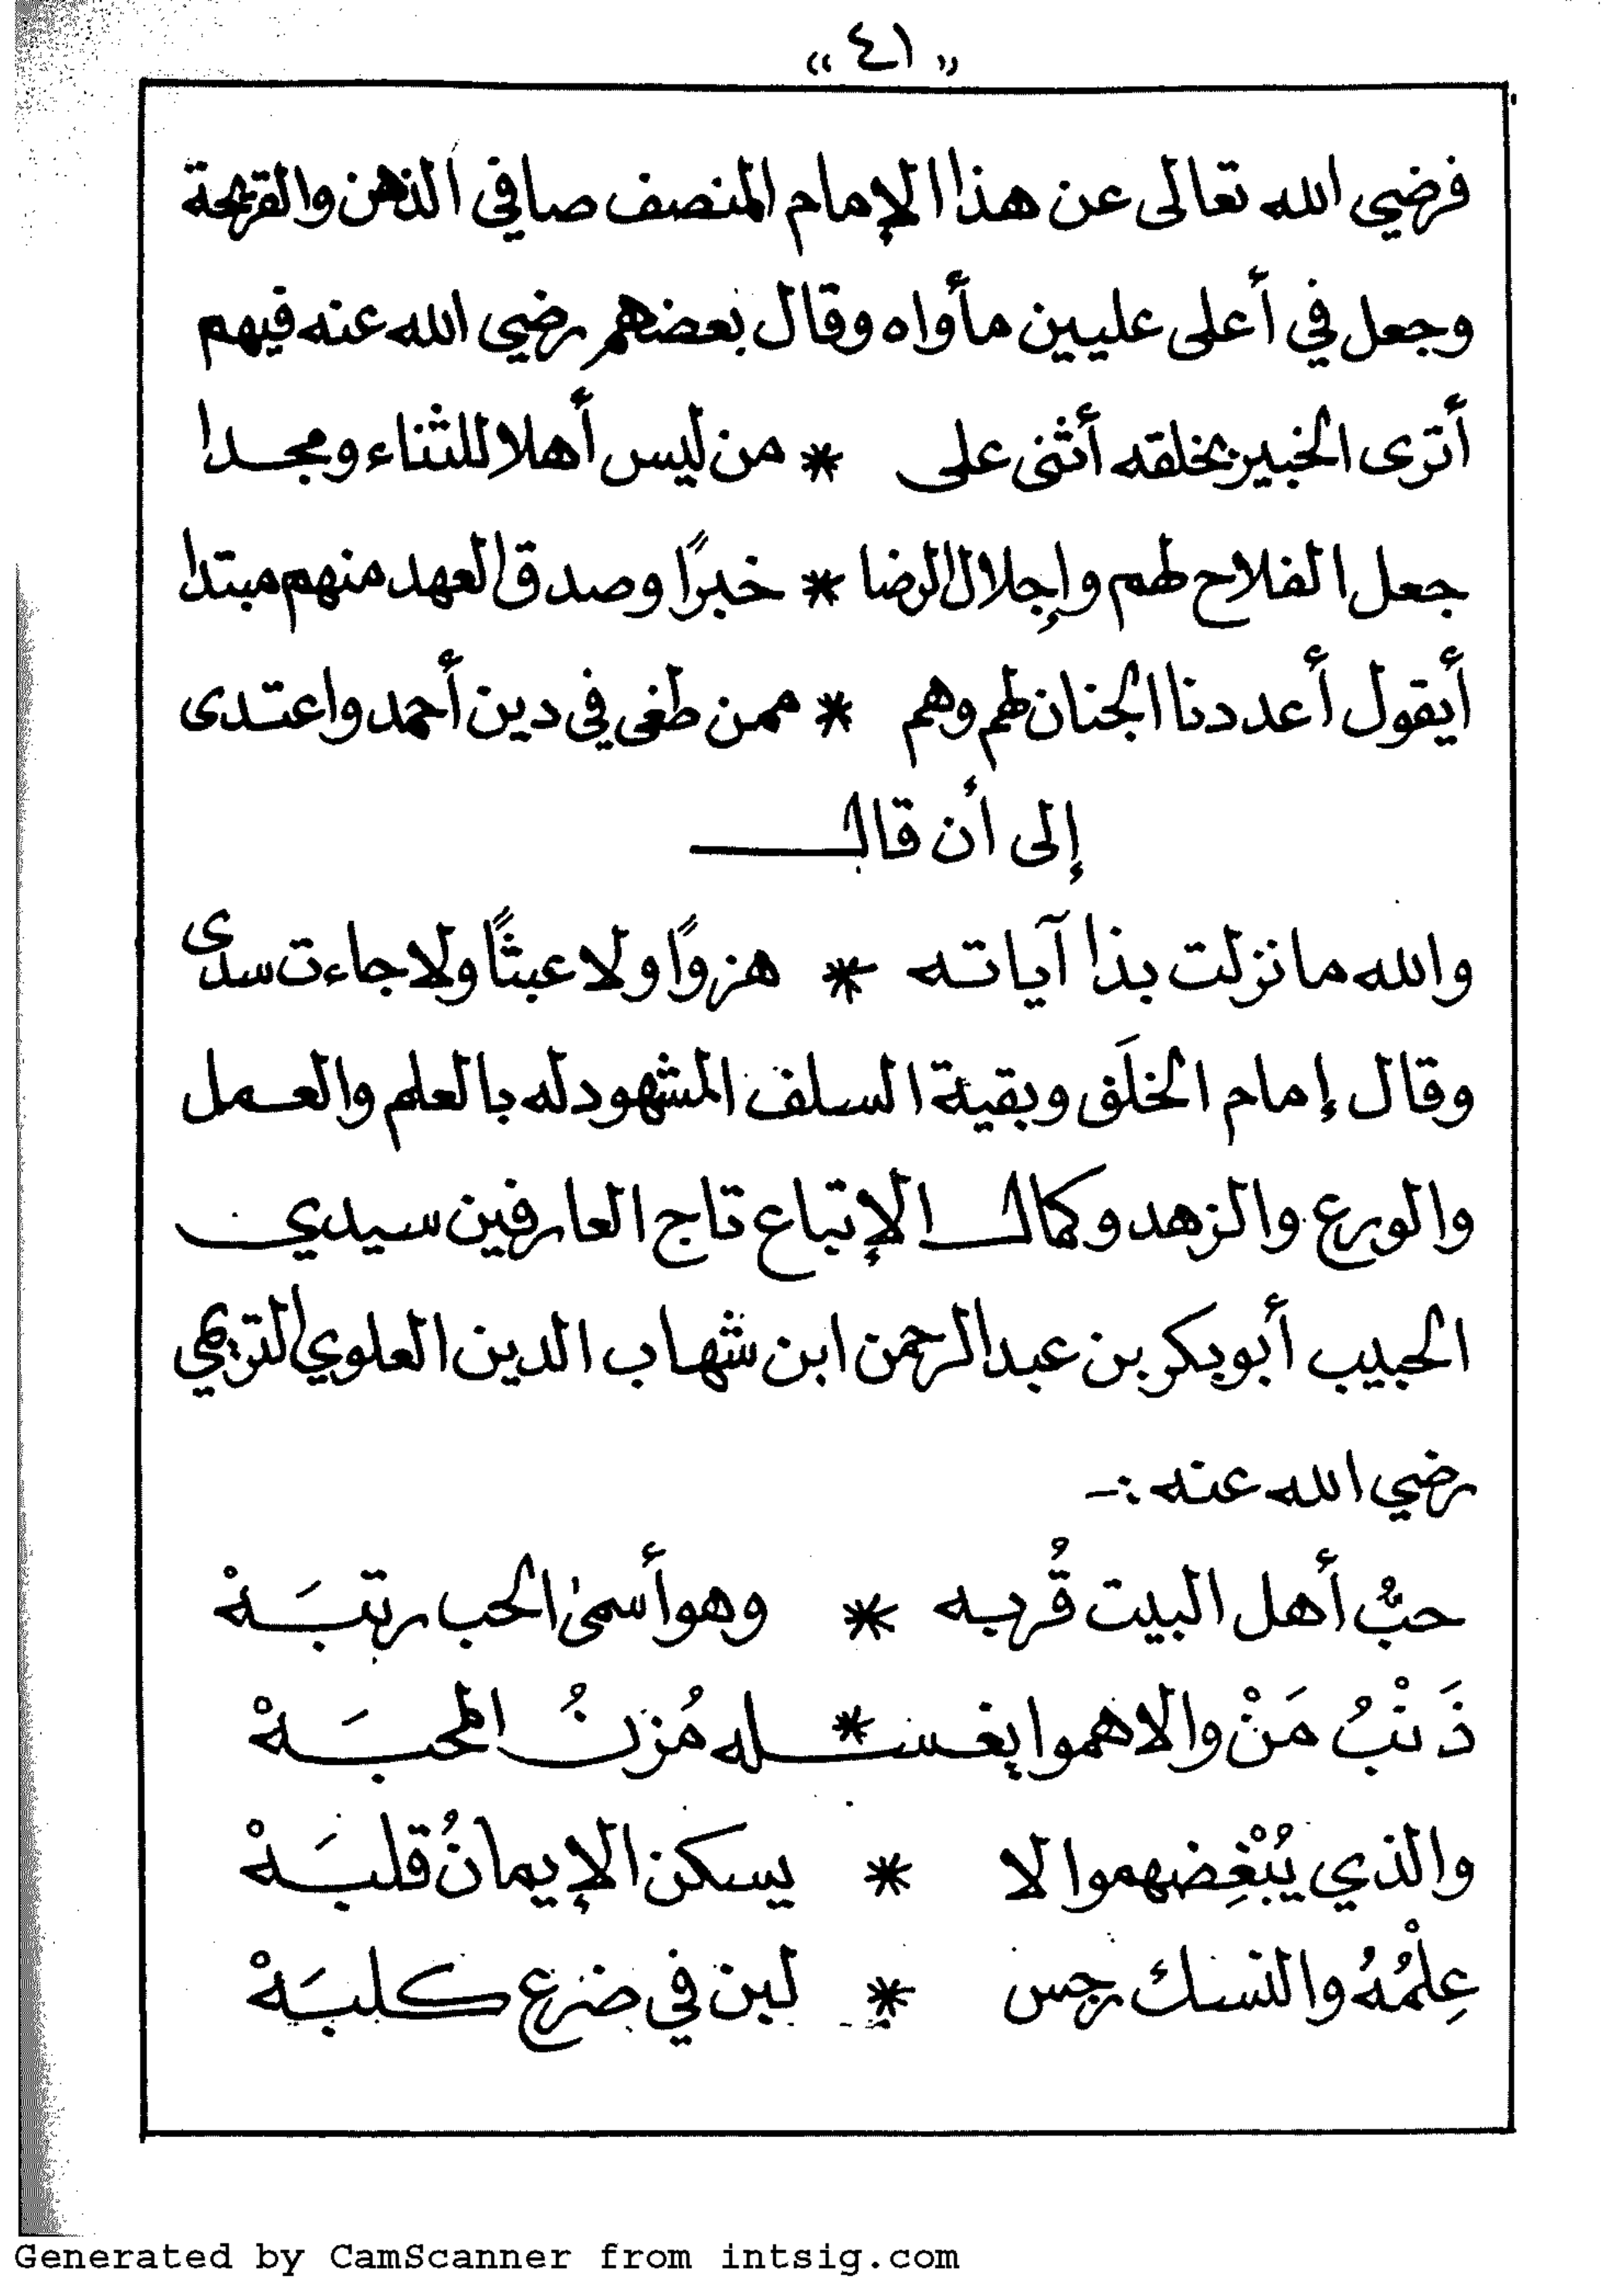 « ٤١ »
فرضي الله تعالى عن هذا الإمام المنصف صافي الذهن والقريحة
وجعل في أعلى عليين مأواه وقال بعضهم رضي الله عنه فيهم
أترى الخبير بخلقه أثنى على * من ليس أهلا للثناء ومجدا
جعل الفلاح لهم وإجلال الرضا * خبرًا وصدق العهد منهم مبتدا
أيقول أعددنا الجنان لهم وهم * ممن طغى في دين أحمد واعتدى
إلى أن قال
والله ما نزلت بذا آياته * هزوًا ولا عبثًا ولا جاءت سدى
وقال إمام الخلَف وبقية السلف المشهود له بالعلم والعمل
والورع والزهد وكمال الإتباع تاج العارفين سيدي
الحبيب أبو بكر بن عبد الرحمن ابن شهاب الدين العلوي التريمي
رضي الله عنه :-
حبُّ أهل البيت قُربه * وهو أسمى الحب رتبَهْ
ذَنْبُ مَنْ والاهموا يغسـ * ـله مُزنُ المحبَهْ
والذي يُبْغِضهموا لا * يسكن الإيمانُ قلبَهْ
عِلْمُهُ والنسك رجس * لبن في ضرع كلبَهْ
Generated by CamScanner from intsig.com